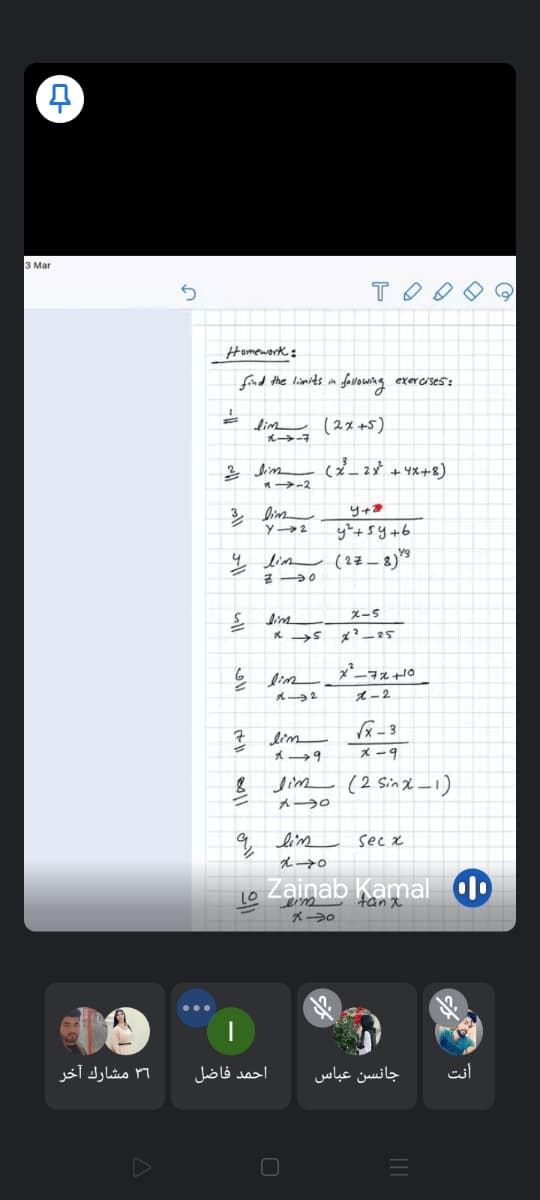 3 Mar
T
Homework:
find the limits in following exercises:
1 lim x→-7 (2x+5)
2 lim x→-2 (x³-2x²+4x+8)
3 lim y→2 y+2/y²+5y+6
4 lim z→0 (2z-8)^1/3
5 lim x→5 x-5/x²-25
6 lim x→2 x²-7x+10/x-2
7 lim x→9 √x-3/x-9
8 lim x→0 (2 sinx-1)
9 lim x→0 sec x
10 lim x→0 tan x
Zainab Kamal
ا
٣٦ مشارك آخر
احمد فاضل
جانسن عباس
أنت